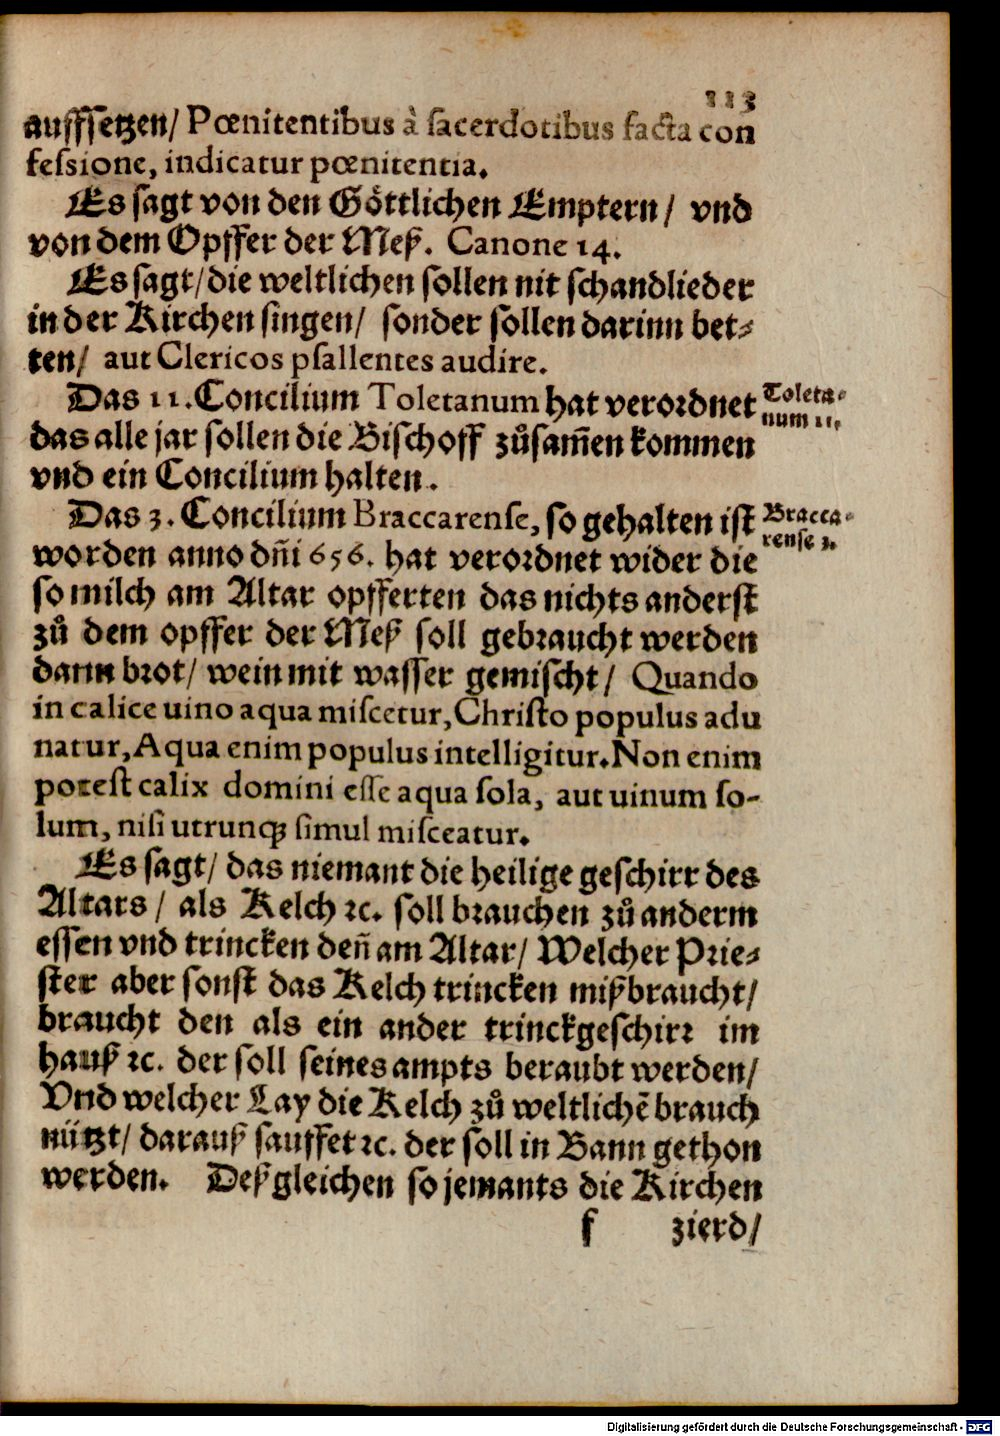 113
auffsetzen/ Pœnitentibus à sacerdotibus facta con
fessione, indicatur pœnitentia.
Es sagt von den Göttlichen Emptern/ vnd
von dem Opffer der Meß. Canone 14.
Es sagt/ die weltlichen sollen nit schandlieder
in der Kirchen singen/ sonder sollen darinn bet⸗
ten/ aut Clericos psallentes audire.
Das 11. Concilium Toletanum hat verordnet
Toleta⸗
num 11,
das alle jar sollen die Bischoff zůsam̃en kommen
vnd ein Concilium halten.
Das 3. Concilium Braccarense, so gehalten ist
Bracca⸗
rense 3.
worden anno dñi 656. hat verordnet wider die
so milch am Altar opfferten das nichts anderst
zů dem opffer der Meß soll gebraucht werden
dann brot/ wein mit wasser gemischt/ Quando
in calice uino aqua miscetur, Christo populus adu
natur, Aqua enim populus intelligitur. Non enim
potest calix domini esse aqua sola, aut uinum so-
lum, nisi utrunqꝫ simul misceatur.
Es sagt/ das niemant die heilige geschirr des
Altars/ als Kelch ꝛc. soll brauchen zů anderm
essen vnd trincken deñ am Altar/ Welcher Prie⸗
ster aber sonst das Kelch trincken mißbraucht/
braucht den als ein ander trinckgeschirr im
hauß ꝛc. der soll seines ampts beraubt werden/
Vnd welcher Lay die Kelch zů weltlichẽ brauch
nützt/ darauß sauffet ꝛc. der soll in Bann gethon
werden. Deßgleichen so jemants die Kirchen
f zierd/
Digitalisierung gefördert durch die Deutsche Forschungsgemeinschaft - DFG